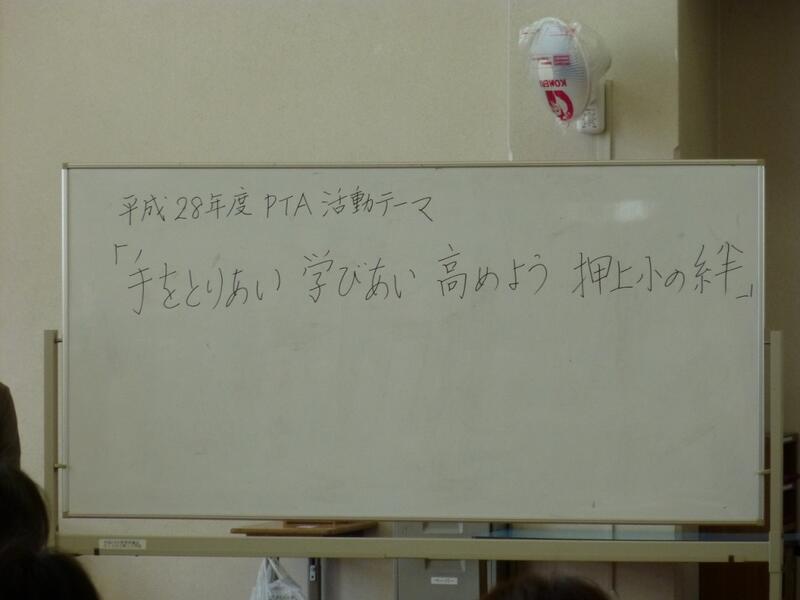 平成28年度 PTA 活動テーマ
「手をとりあい 学びあい 高めよう 押上小の絆」
KOMERI